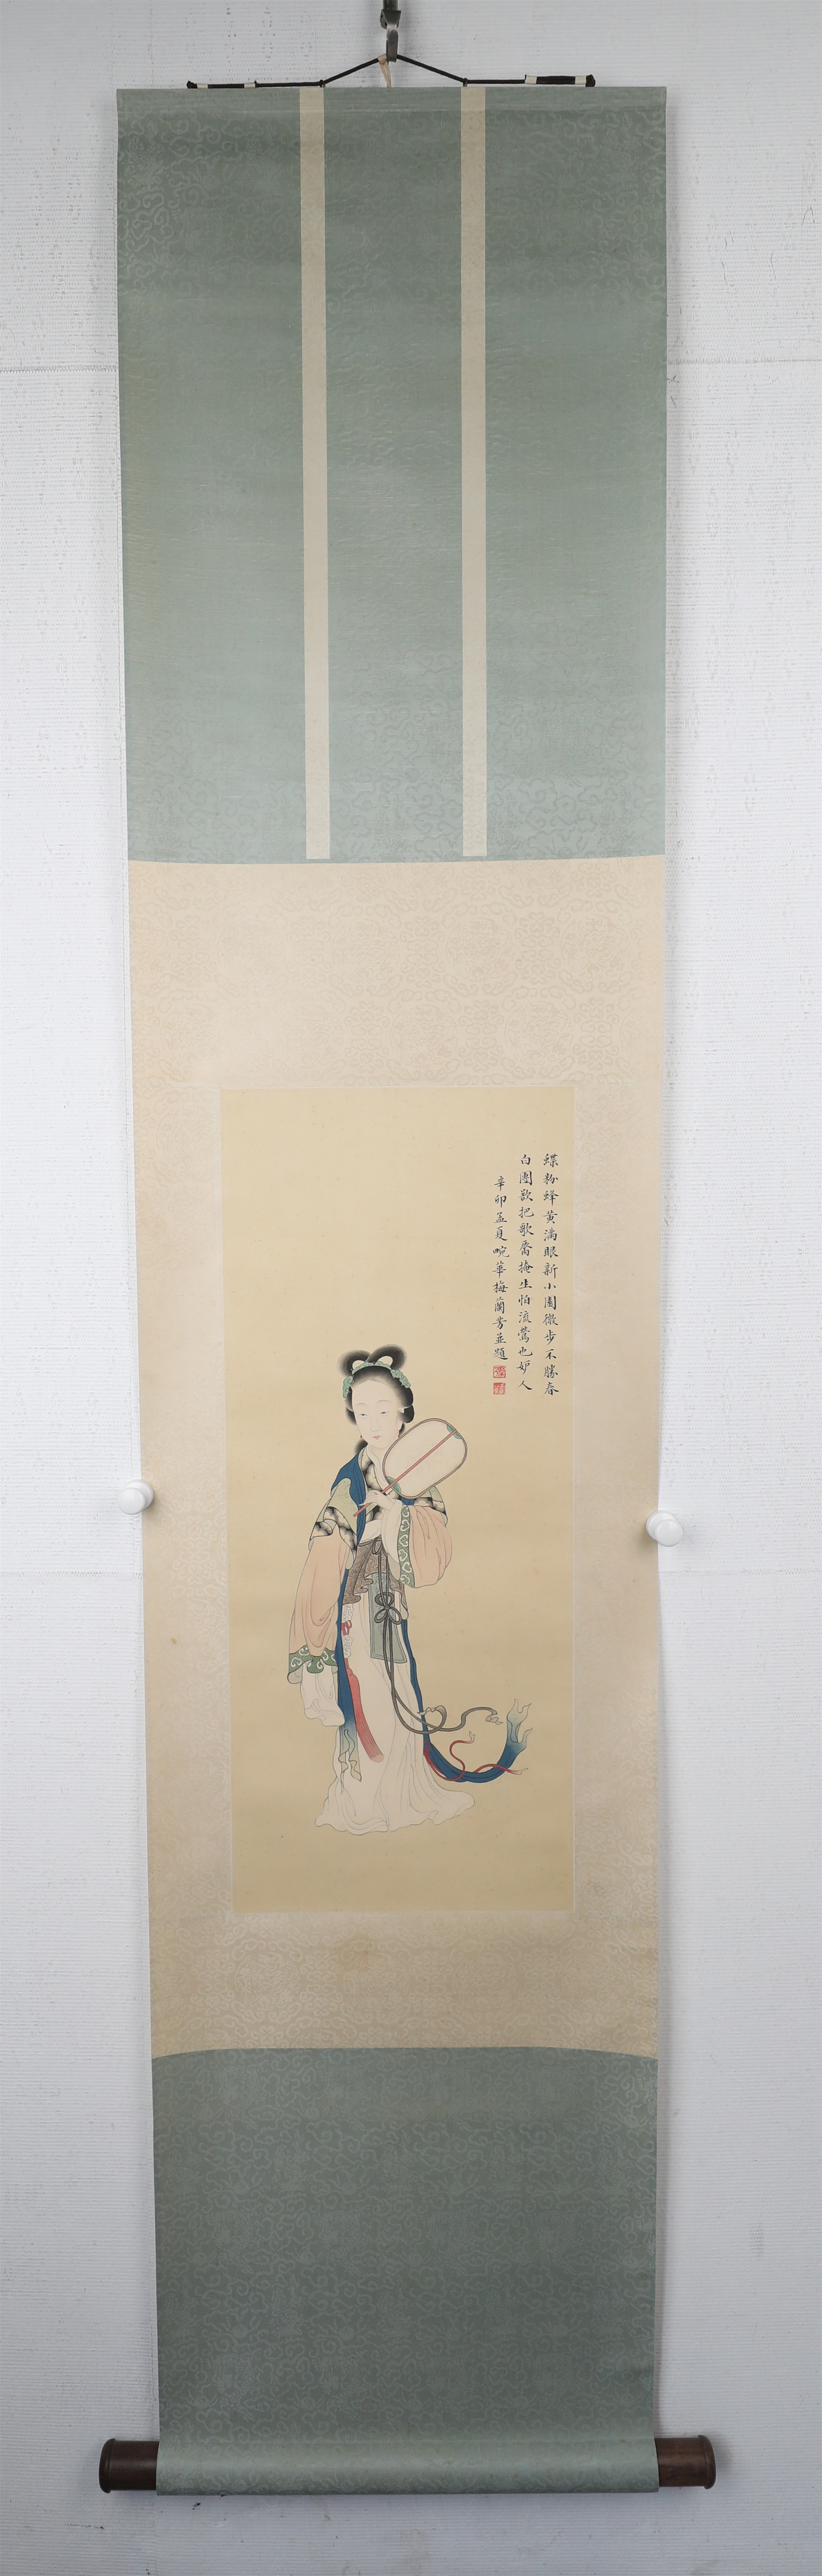 蝶粉蜂黄満眼新小園微步不勝春
白團欲把歌脣掩生怕流鶯也妒人
辛卯孟夏畹華梅蘭芳並題